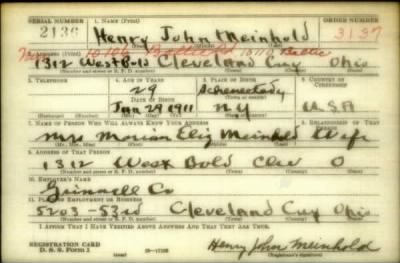 SERIAL NUMBER 1. NAME (Print) ORDER NUMBER
2136 Henry John Meinhold 3137
(First) (Middle) (Last)
2. ADDRESS (Print) 10106 Baltic
1312 West Blvd Cleveland Cuy Ohio
(Number and street or R. F. D. number) (Town) (County) (State)
3. TELEPHONE 4. AGE IN YEARS 5. PLACE OF BIRTH 6. COUNTRY OF CITIZENSHIP
29 Schenectady
DATE OF BIRTH
Jan 29 1911 N Y U.S.A
(Mo.) (Day) (Yr.) (State or country)
7. NAME OF PERSON WHO WILL ALWAYS KNOW YOUR ADDRESS 8. RELATIONSHIP OF THAT PERSON
Mrs Eliz Meinhold Wife
(Mr., Mrs., Miss) (First) (Middle) (Last)
9. ADDRESS OF THAT PERSON
1312 West Blvd Clev O
(Number and street or R. F. D. number) (Town) (County) (State)
10. EMPLOYER'S NAME
Grinnell Co
11. PLACE OF EMPLOYMENT OR BUSINESS
5203 - 53rd Cleveland Cuy Ohio
(Number and street or R. F. D. number) (Town) (County) (State)
I AFFIRM THAT I HAVE VERIFIED ABOVE ANSWERS AND THAT THEY ARE TRUE.
REGISTRATION CARD
D. S. S. Form 1 Henry John Meinhold
(Registrant's signature)